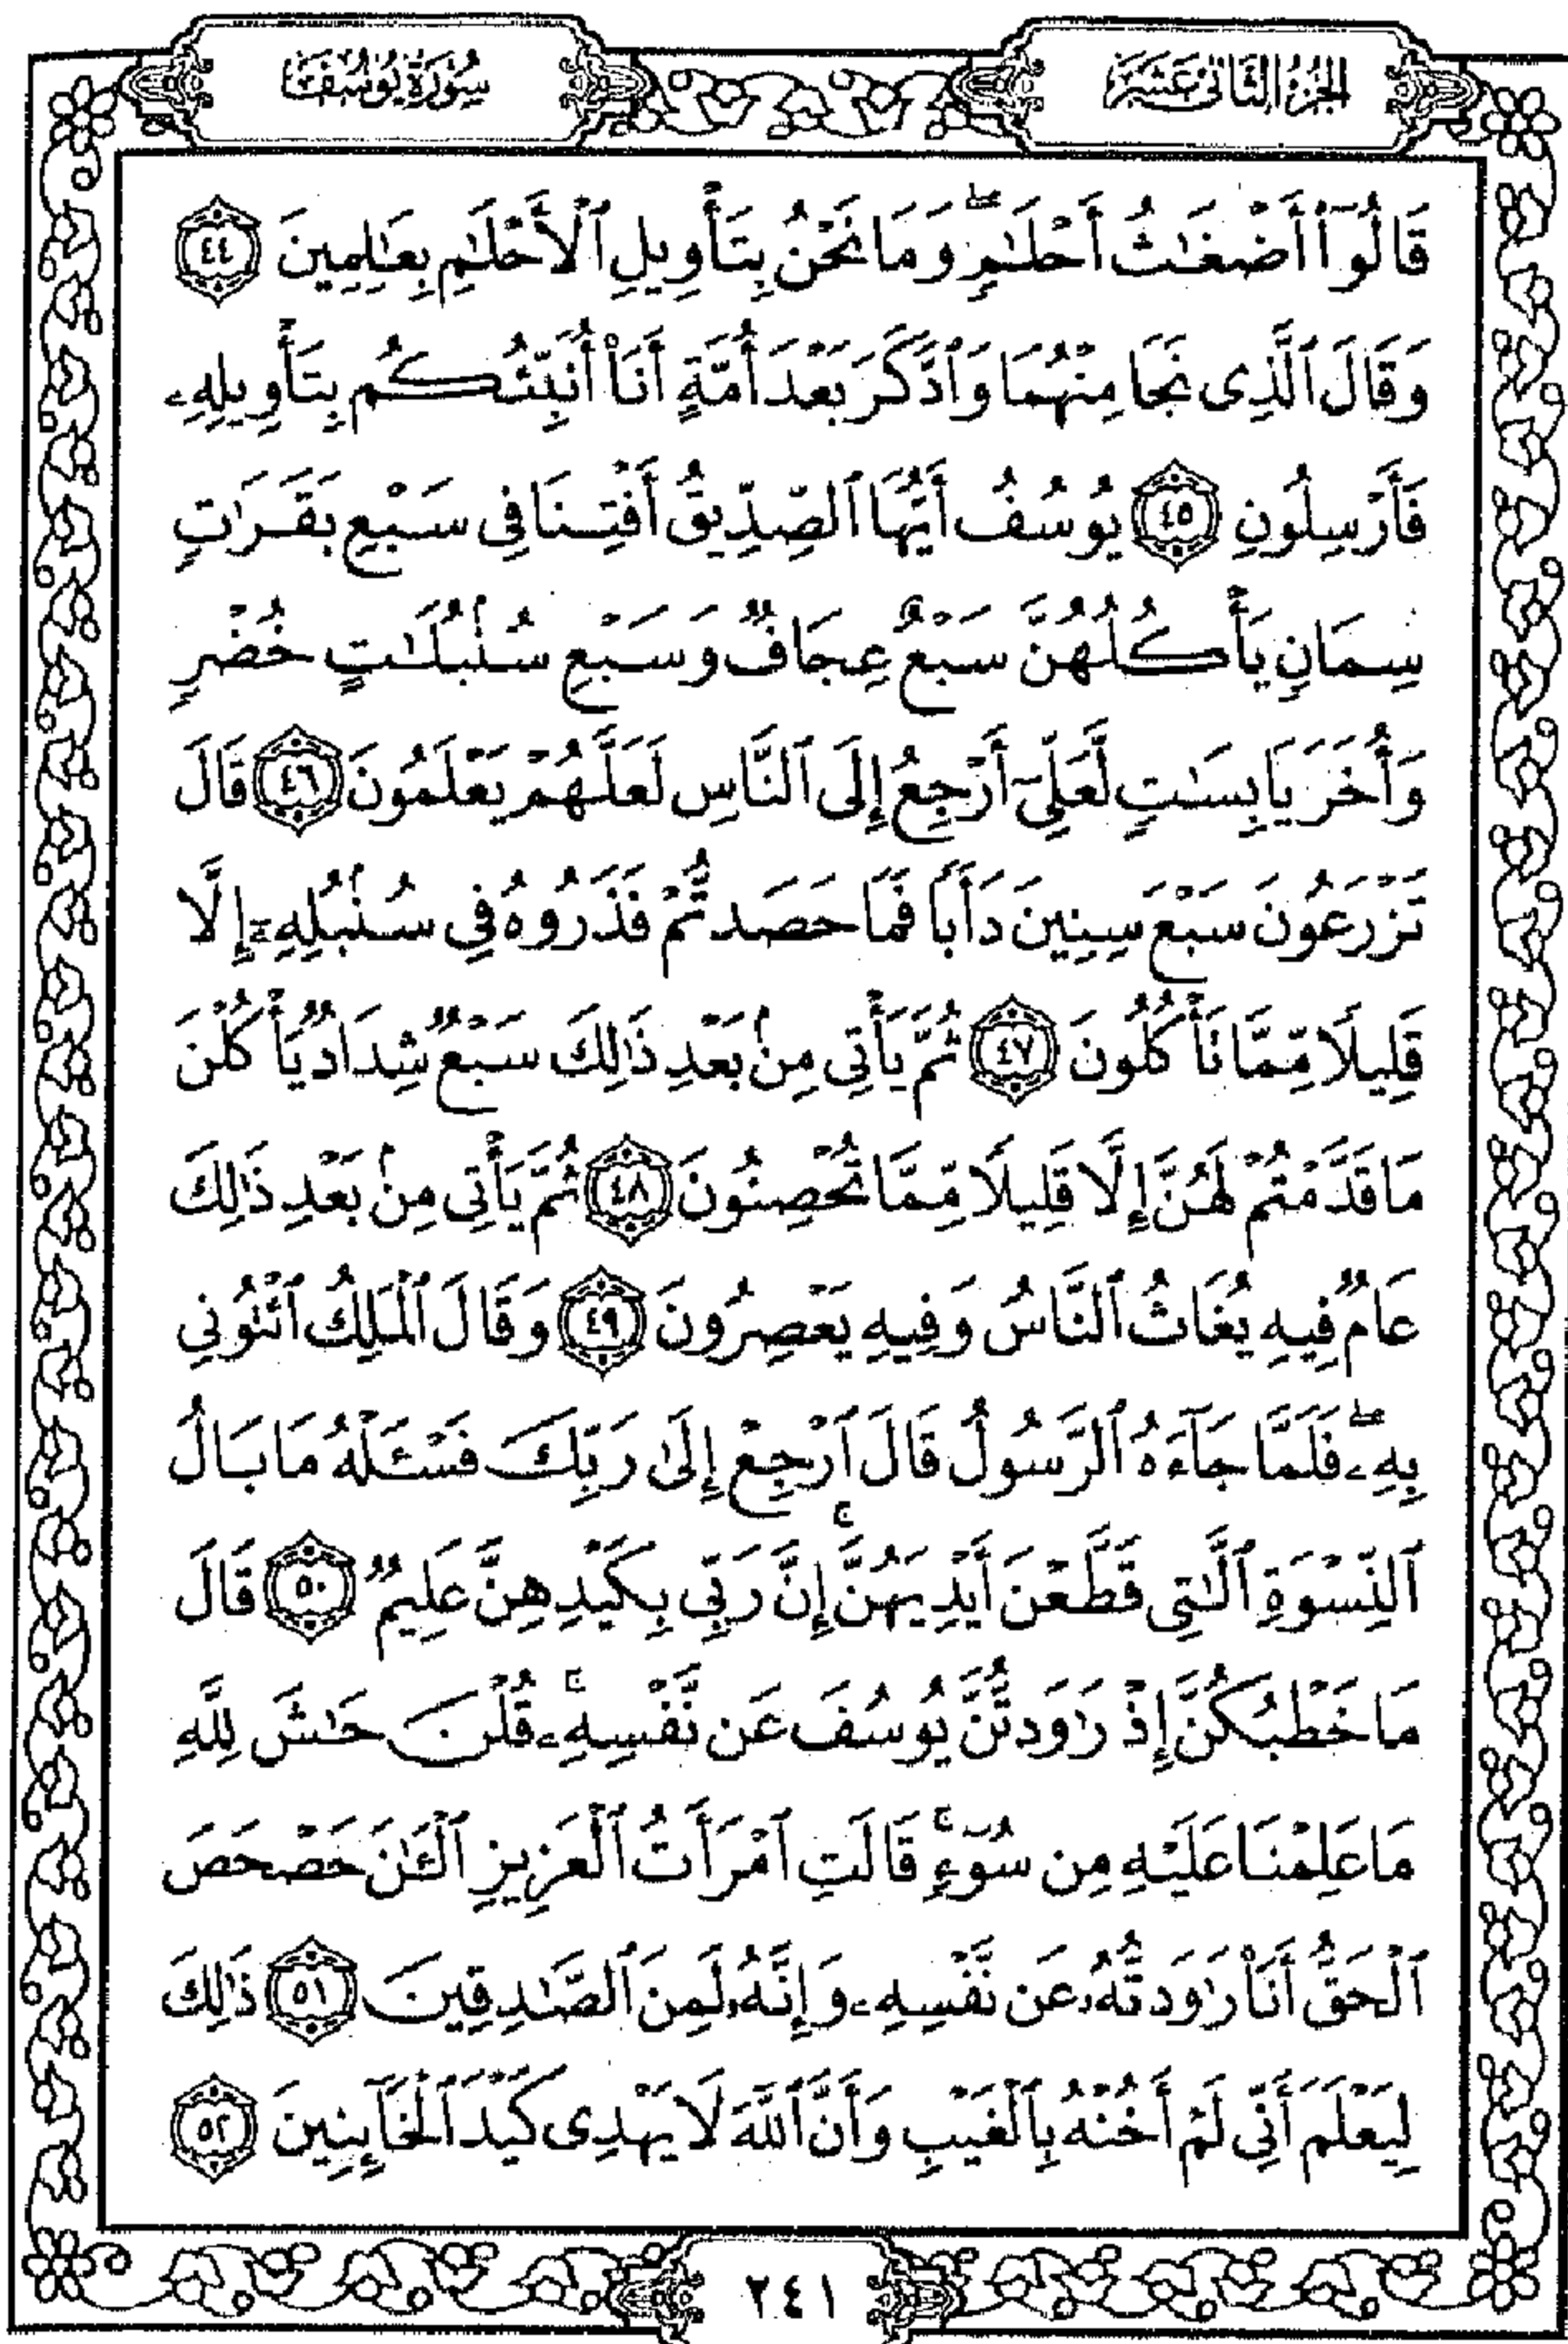 الجزء الثاني عشر
سورة يوسف
قَالُوٓا۟ أَضْغَٰثُ أَحْلَٰمٍۖ وَمَا نَحْنُ بِتَأْوِيلِ ٱلْأَحْلَٰمِ بِعَٰلِمِينَ ٤٤
وَقَالَ ٱلَّذِى نَجَا مِنْهُمَا وَٱدَّكَرَ بَعْدَ أُمَّةٍ أَنَا۠ أُنَبِّئُكُم بِتَأْوِيلِهِۦ
فَأَرْسِلُونِ ٤٥ يُوسُفُ أَيُّهَا ٱلصِّدِّيقُ أَفْتِنَا فِى سَبْعِ بَقَرَٰتٍ
سِمَانٍ يَأْكُلُهُنَّ سَبْعٌ عِجَافٌ وَسَبْعِ سُنۢبُلَٰتٍ خُضْرٍ
وَأُخَرَ يَابِسَٰتٍ لَّعَلِّىٓ أَرْجِعُ إِلَى ٱلنَّاسِ لَعَلَّهُمْ يَعْلَمُونَ ٤٦ قَالَ
تَزْرَعُونَ سَبْعَ سِنِينَ دَأَبًا فَمَا حَصَدتُّمْ فَذَرُوهُ فِى سُنۢبُلِهِۦٓ إِلَّا
قَلِيلًا مِّمَّا تَأْكُلُونَ ٤٧ ثُمَّ يَأْتِى مِنۢ بَعْدِ ذَٰلِكَ سَبْعٌ شِدَادٌ يَأْكُلْنَ
مَا قَدَّمْتُمْ لَهُنَّ إِلَّا قَلِيلًا مِّمَّا تُحْصِنُونَ ٤٨ ثُمَّ يَأْتِى مِنۢ بَعْدِ ذَٰلِكَ
عَامٌ فِيهِ يُغَاثُ ٱلنَّاسُ وَفِيهِ يَعْصِرُونَ ٤٩ وَقَالَ ٱلْمَلِكُ ٱئْتُونِى
بِهِۦۖ فَلَمَّا جَآءَهُ ٱلرَّسُولُ قَالَ ٱرْجِعْ إِلَىٰ رَبِّكَ فَسْـَٔلْهُ مَا بَالُ
ٱلنِّسْوَةِ ٱلَّٰتِى قَطَّعْنَ أَيْدِيَهُنَّۚ إِنَّ رَبِّى بِكَيْدِهِنَّ عَلِيمٌ ٥٠ قَالَ
مَا خَطْبُكُنَّ إِذْ رَٰوَدتُّنَّ يُوسُفَ عَن نَّفْسِهِۦۚ قُلْنَ حَٰشَ لِلَّهِ
مَا عَلِمْنَا عَلَيْهِ مِن سُوٓءٍۚ قَالَتِ ٱمْرَأَتُ ٱلْعَزِيزِ ٱلْـَٰٔنَ حَصْحَصَ
ٱلْحَقُّ أَنَا۠ رَٰوَدتُّهُۥ عَن نَّفْسِهِۦ وَإِنَّهُۥ لَمِنَ ٱلصَّٰدِقِينَ ٥١ ذَٰلِكَ
لِيَعْلَمَ أَنِّى لَمْ أَخُنْهُ بِٱلْغَيْبِ وَأَنَّ ٱللَّهَ لَا يَهْدِى كَيْدَ ٱلْخَآئِنِينَ ٥٢
٢٤١